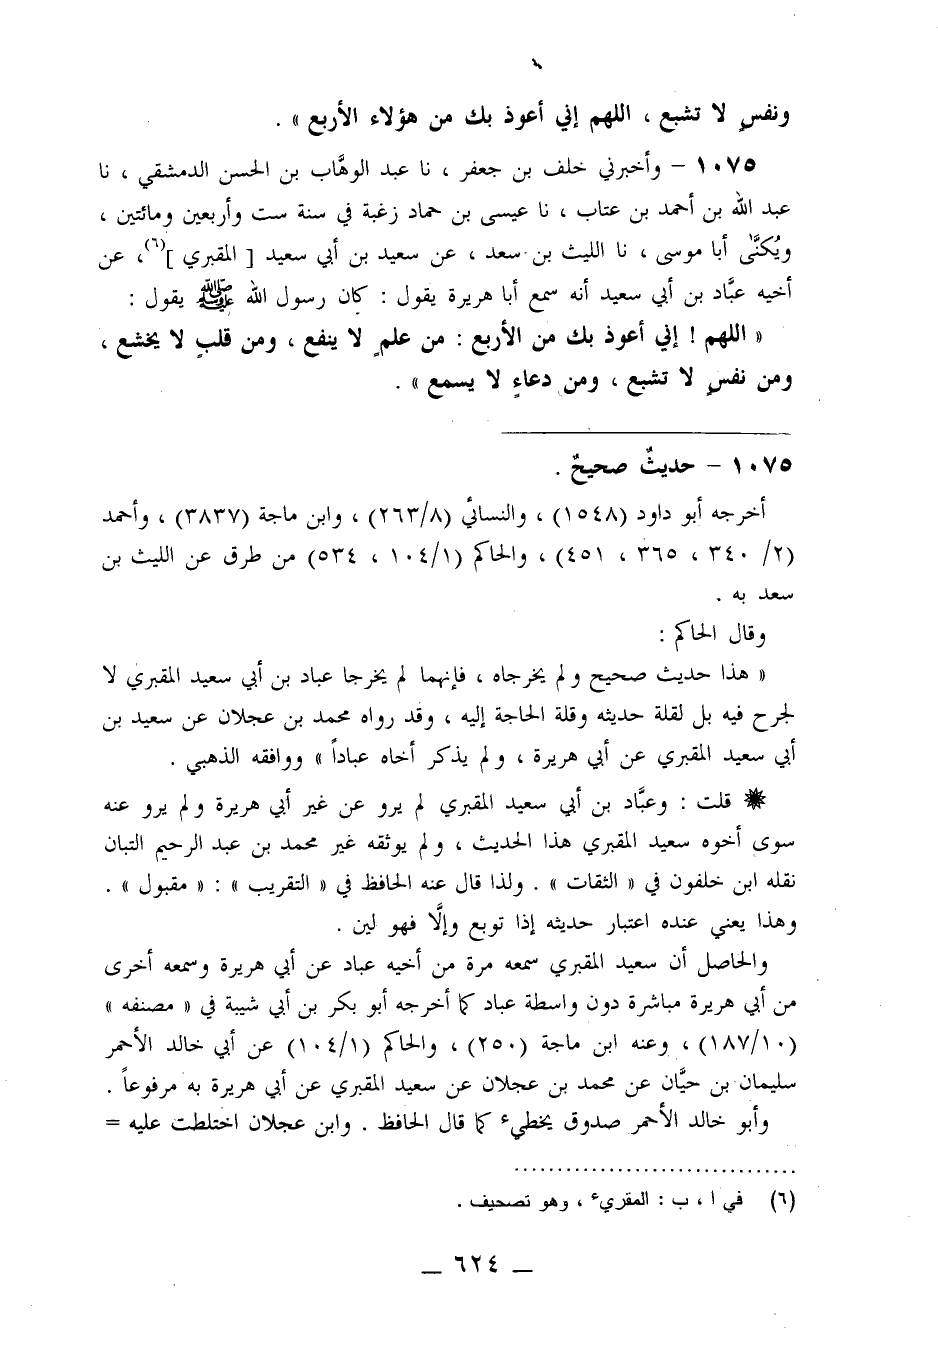 ونفسٍ لا تشبع ، اللهم إني أعوذ بك من هؤلاء الأربع » .
١٠٧٥ – وأخبرني خلف بن جعفر ، نا عبد الوهَّاب بن الحسن الدمشقي ، نا
عبد الله بن أحمد بن عتاب ، نا عيسى بن حماد زغبة في سنة ست وأربعين ومائتين ،
ويُكنَّى أبا موسى ، نا الليث بن سعد ، عن سعيد بن أبي سعيد [ المقبري ](٦)، عن
أخيه عبَّاد بن أبي سعيد أنه سمع أبا هريرة يقول : كان رسول الله ﷺ يقول :
« اللهم ! إني أعوذ بك من الأربع : من علمٍ لا ينفع ، ومن قلبٍ لا يخشع ،
ومن نفسٍ لا تشبع ، ومن دعاءٍ لا يسمع » .
١٠٧٥ – حديثٌ صحيحٌ .
أخرجه أبو داود (١٥٤٨) ، والنسائي (٢٦٣/٨) ، وابن ماجة (٣٨٣٧) ، وأحمد
(٢/ ٣٤٠ ، ٣٦٥ ، ٤٥١) ، والحاكم (١٠٤/١ ، ٥٣٤) من طرق عن الليث بن
سعد به .
وقال الحاكم :
« هذا حديث صحيح ولم يخرجاه ، فإنهما لم يخرجا عباد بن أبي سعيد المقبري لا
لجرح فيه بل لقلة حديثه وقلة الحاجة إليه ، وقد رواه محمد بن عجلان عن سعيد بن
أبي سعيد المقبري عن أبي هريرة ، ولم يذكر أخاه عباداً » ووافقه الذهبي .
✸ قلت : وعبَّاد بن أبي سعيد المقبري لم يرو عن غير أبي هريرة ولم يرو عنه
سوى أخوه سعيد المقبري هذا الحديث ، ولم يوثقه غير محمد بن عبد الرحيم التبان
نقله ابن خلفون في « الثقات » . ولذا قال عنه الحافظ في « التقريب » : « مقبول » .
وهذا يعني عنده اعتبار حديثه إذا توبع وإلَّا فهو لين .
والحاصل أن سعيد المقبري سمعه مرة من أخيه عباد عن أبي هريرة وسمعه أخرى
من أبي هريرة مباشرة دون واسطة عباد كما أخرجه أبو بكر بن أبي شيبة في « مصنفه »
(١٨٧/١٠) ، وعنه ابن ماجة (٢٥٠) ، والحاكم (١٠٤/١) عن أبي خالد الأحمر
سليمان بن حيَّان عن محمد بن عجلان عن سعيد المقبري عن أبي هريرة به مرفوعاً .
وأبو خالد الأحمر صدوق يخطيء كما قال الحافظ . وابن عجلان اختلطت عليه =
(٦) في ا ، ب : المقريء ، وهو تصحيف .
– ٦٢٤ –